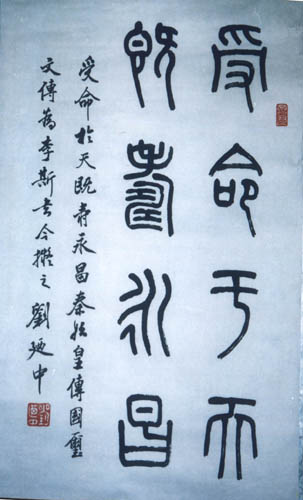 受命于天
既壽永昌
受命於天既壽永昌秦始皇傳國璽
文傳為李斯書今擬之劉廼中